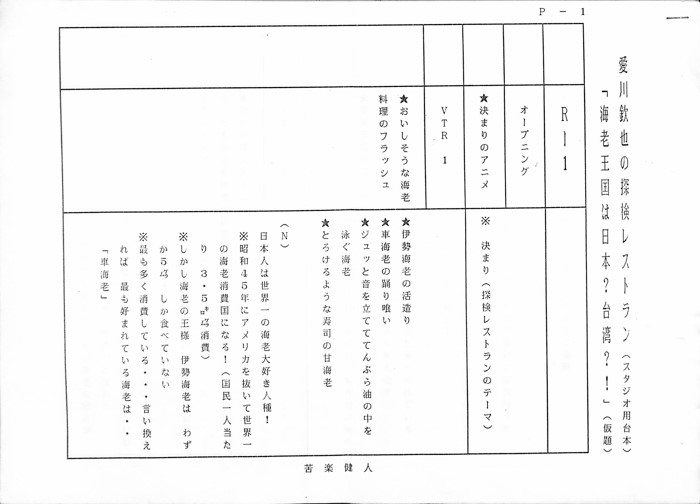 P－1
愛川欽也の探検レストラン（スタジオ用台本）
「海老王国は日本？台湾？！」（仮題）
R－1
オープニング
★決まりのアニメ
※　決まり（探検レストランのテーマ）
VTR　1
★おいしそうな海老
料理のフラッシュ
★伊勢海老の活造り
★車海老の踊り喰い
★ジュッと音を立てててんぷら油の中を
泳ぐ海老
★とろけるような寿司の甘海老
（N）
日本人は世界一の海老大好き人種！
※昭和45年にアメリカを抜いて世界一
の海老消費国になる！（国民一人当た
り　3・5㌔㌘消費）
※しかし海老の王様　伊勢海老は　わず
か5㌘　しか食べていない
※最も多く消費している・・・言い換え
れば　最も好まれている海老は・・
「車海老」
苦楽健人